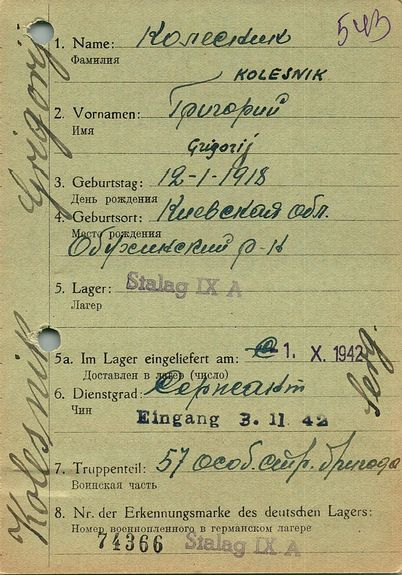 543
1. Name: Колесник
Фамилия
KOLESNIK
2. Vornamen: Григорий
Имя
Grigorij
3. Geburtstag: 12-1-1918
День рождения
4. Geburtsort: Киевская обл.
Место рождения
Обухинский р-н
5. Lager: Stalag IX A
Лагер
5a. Im Lager eingeliefert am: 1. X. 1942
Доставлен в лагер (число)
6. Dienstgrad: Сержант
Чин
Eingang 3. 11 42
7. Truppenteil: 57 особ. стр. бригада
Воинская часть
8. Nr. der Erkennungsmarke des deutschen Lagers:
Номер военнопленного в германском лагере
74366 Stalag IX A
Kolesnik Grigorij
Serg.